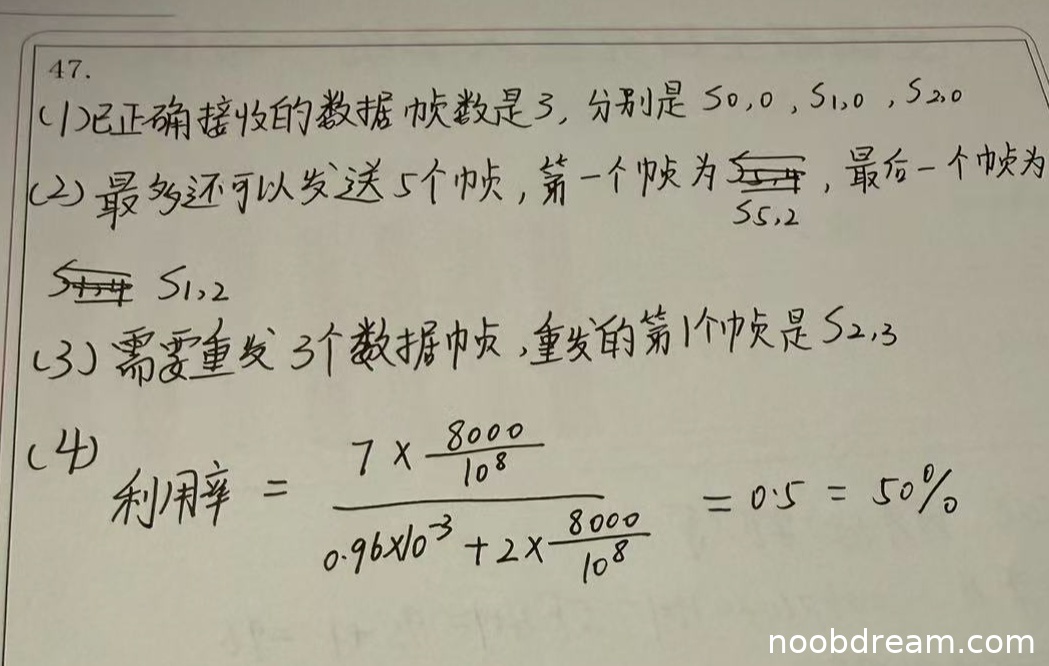 47.
(1)已正确接收的数据帧数是3, 分别是 S0,0 , S1,0 , S2,0
(2) 最多还可以发送5个帧, 第一个帧为 , 最后一个帧为
S5,2
S1,2
(3) 需要重发 3个数据帧, 重发的第1个帧是 S2,3
(4) 利用率 = (7 × 8000/10⁸) / (0.96×10⁻³ + 2 × 8000/10⁸) = 0.5 = 50%
noobdream.com